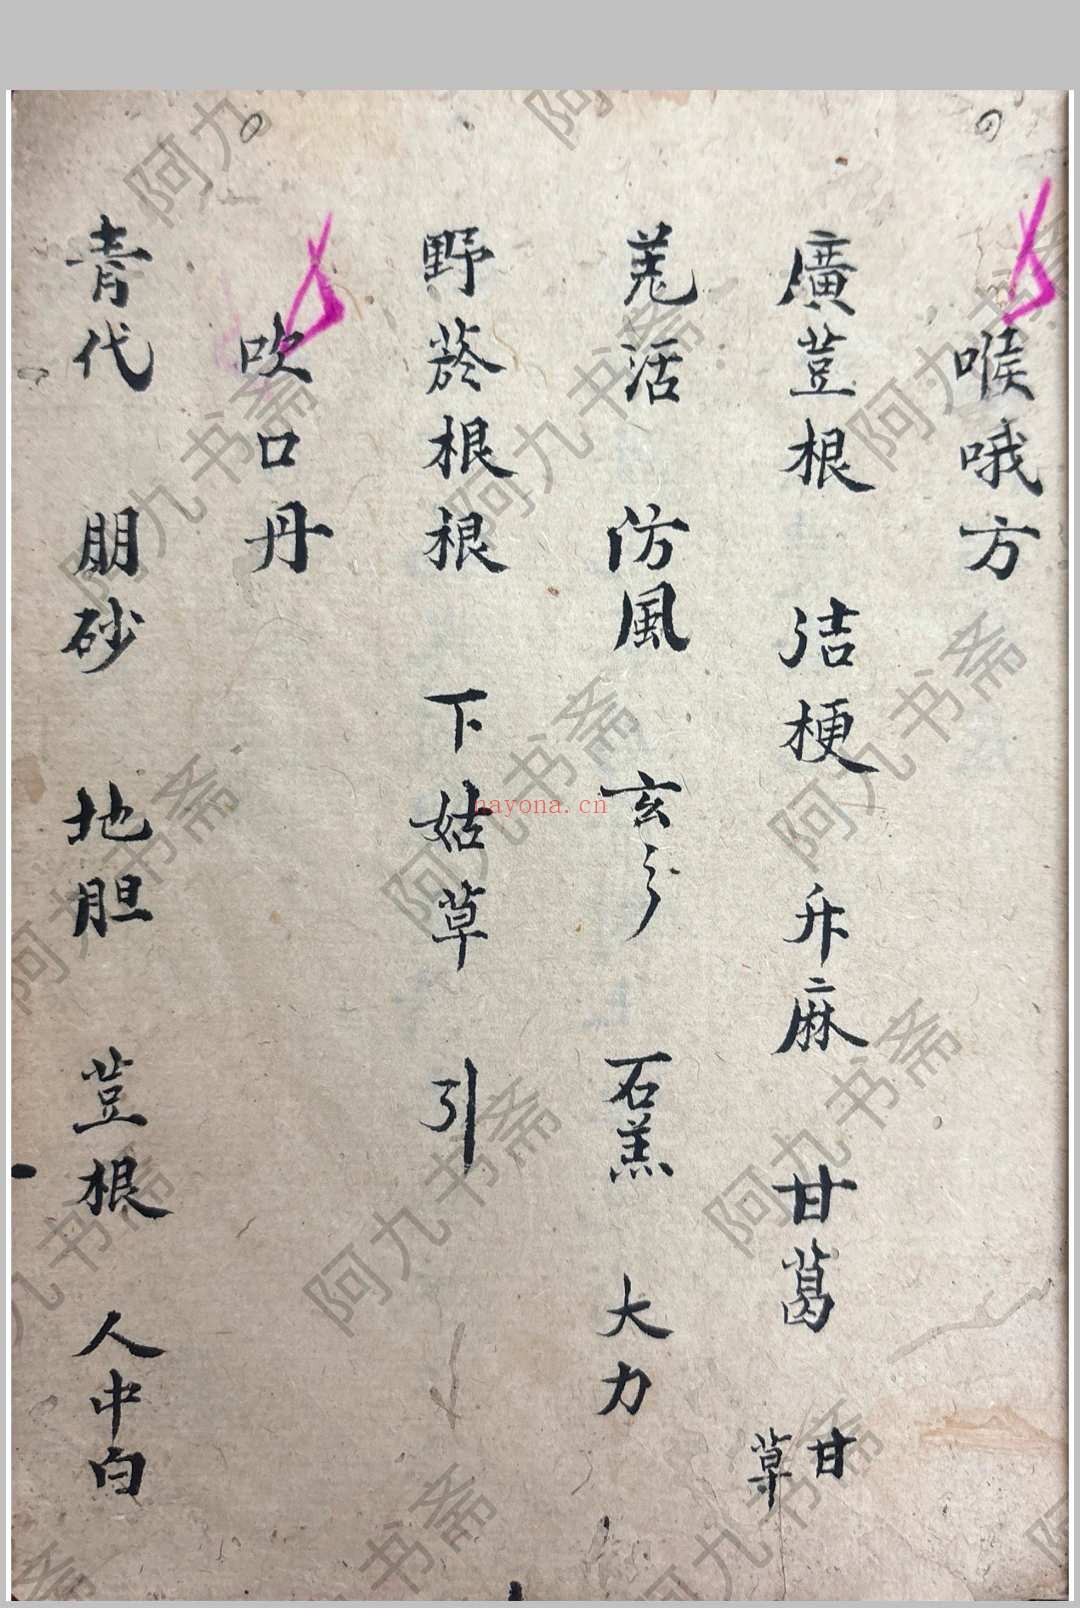 喉哦方
廣荳根 洁梗 升麻 甘葛 甘草
羌活 防風 玄参 石羔 大力
野菸根根 下姑草 引
吹口丹
青代 朋砂 地胆 荳根 人中白
nayona.cn
阿九书斋